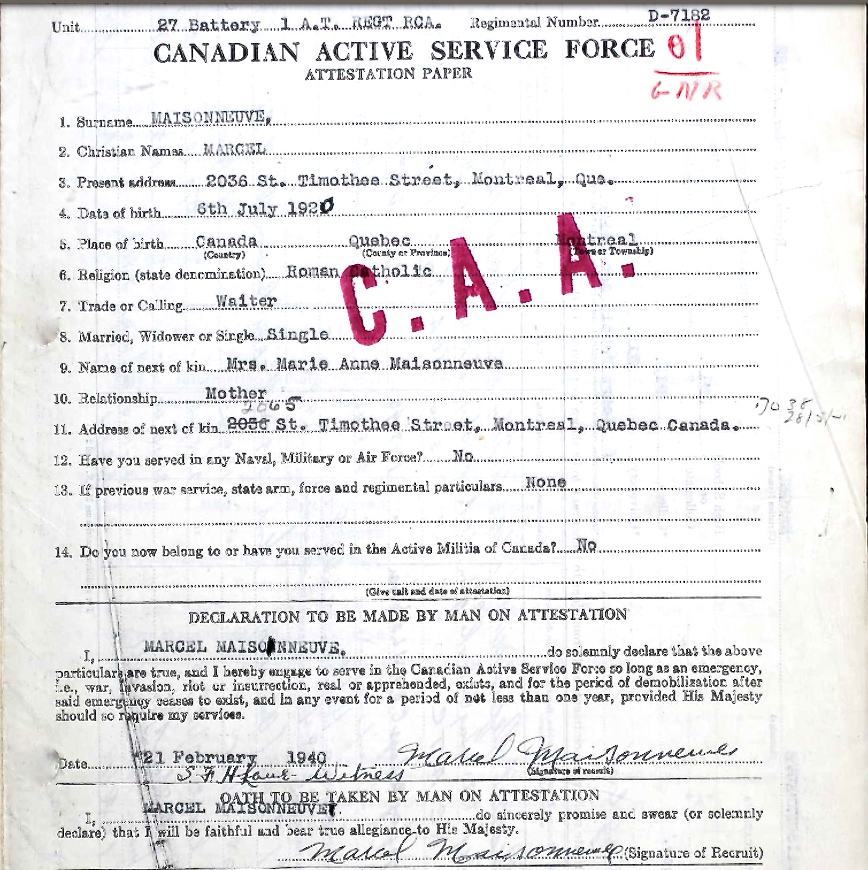 Unit 27 Battery 1 A.T. REGT RCA. Regimental Number D-7182
CANADIAN ACTIVE SERVICE FORCE 01
ATTESTATION PAPER
GNR
1. Surname MAISONNEUVE,
2. Christian Names MARCEL
3. Present address 2036 St. Timothee Street, Montreal, Que.
4. Date of birth 6th July 1920
5. Place of birth Canada Quebec Montreal
(Country) (County or Province) (Town or Township)
6. Religion (state denomination) Roman Catholic
C.A.A.
7. Trade or Calling Waiter
8. Married, Widower or Single Single
9. Name of next of kin Mrs. Marie Anne Maisonneuve
10. Relationship Mother
2065
11. Address of next of kin 2036 St. Timothee Street, Montreal, Quebec Canada.
12. Have you served in any Naval, Military or Air Force? No
13. If previous war service, state arm, force and regimental particulars None
14. Do you now belong to or have you served in the Active Militia of Canada? No
(Give unit and date of attestation)
DECLARATION TO BE MADE BY MAN ON ATTESTATION
I, MARCEL MAISONNEUVE. do solemnly declare that the above
particulars are true, and I hereby engage to serve in the Canadian Active Service Force so long as an emergency,
i.e., war, invasion, riot or insurrection, real or apprehended, exists, and for the period of demobilization after
said emergency ceases to exist, and in any event for a period of not less than one year, provided His Majesty
should so require my services.
Date 21 February 1940 Marcel Maisonneuve
Witness (Signature of recruit)
OATH TO BE TAKEN BY MAN ON ATTESTATION
I, MARCEL MAISONNEUVE. do sincerely promise and swear (or solemnly
declare) that I will be faithful and bear true allegiance to His Majesty.
Marcel Maisonneuve (Signature of Recruit)